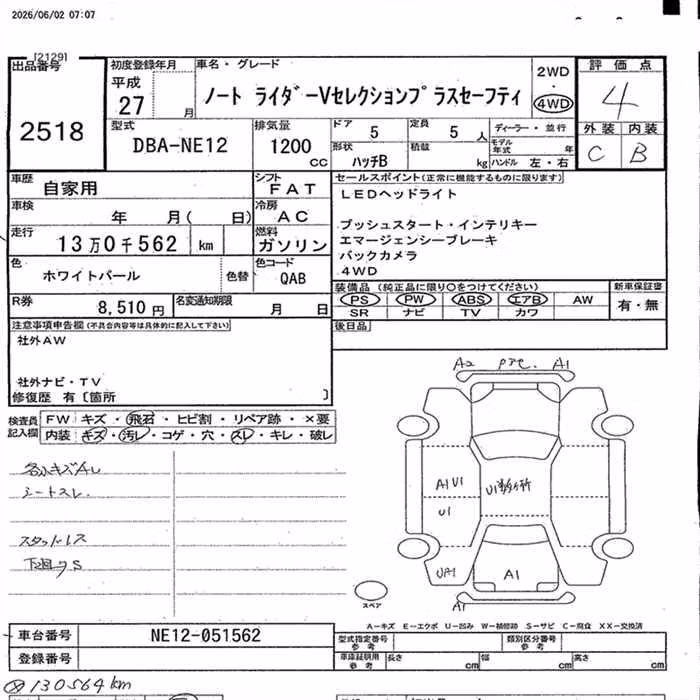 2026/06/02 07:07
[2129]
出品番号
2518
初度登録年月
平成
27 月
車名・グレード
ノート ライダーVセレクションプラスセーフティ
2WD
4WD
評価点
4
型式
DBA-NE12
排気量
1200 CC
ドア 5
定員 5 人
形状 ハッチB
積載 kg
ディーラー・並行
モデル年式 年
ハンドル 左・右
外装 内装
C B
車歴
自家用
シフト
FAT
車検
年 月( 日)
冷房
AC
走行
13万0千562 km
燃料
ガソリン
色
ホワイトパール
色替
色コード
QAB
R券
8,510 円
名変通知期限
月 日
セールスポイント(正常に機能するものに限ります)
LEDヘッドライト
プッシュスタート・インテリキー
エマージェンシーブレーキ
バックカメラ
4WD
装備品 (純正品に限り○をつけてください)
PS PW ABS エアB AW
SR ナビ TV カワ
新車保証書
有・無
後日品
注意事項申告欄(不具合内容等は具体的に記入して下さい)
社外AW
社外ナビ・TV
修復歴 有〔箇所 〕
検査員記入欄
FW キズ・飛石・ヒビ割・リペア跡・×要
内装 キズ・汚レ・コゲ・穴・スレ・キレ・破レ
シートスレ.
スタッドレス
下回りS
A2 A1
A1 U1
U1
U1
UA1
A1
A1
スペア
A-キズ E-エクボ U-凹み W-補修跡 S-サビ C-腐食 XX-交換済
車台番号
NE12-051562
登録番号
型式指定番号 参考
類別区分番号 参考
車庫証明用 参考
長さ cm
幅 cm
高さ cm
130564km